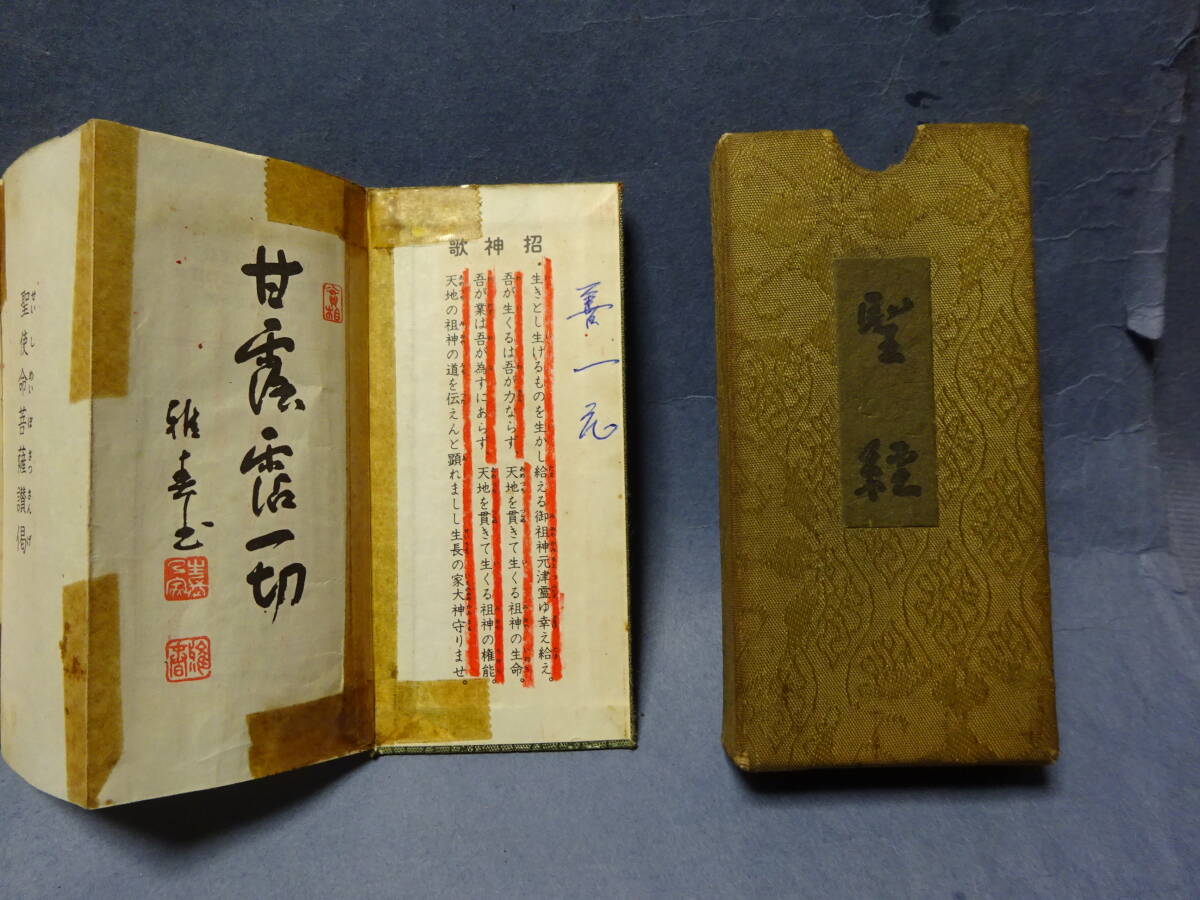 招神歌
生きとし生けるものを生かし給える御祖神元津霊ゆ幸え給え。
吾が生くるは吾が力ならず 天地を貫きて生くる祖神の生命。
吾が業は吾が為すにあらず 天地を貫きて生くる祖神の権能。
天地の祖神の道を伝えんと顕れましし生長の家大神守りませ。
善一元
実相
甘露霑一切
雅春書
聖使命菩薩讃偈
せいしめいぼさつさんげ
聖経